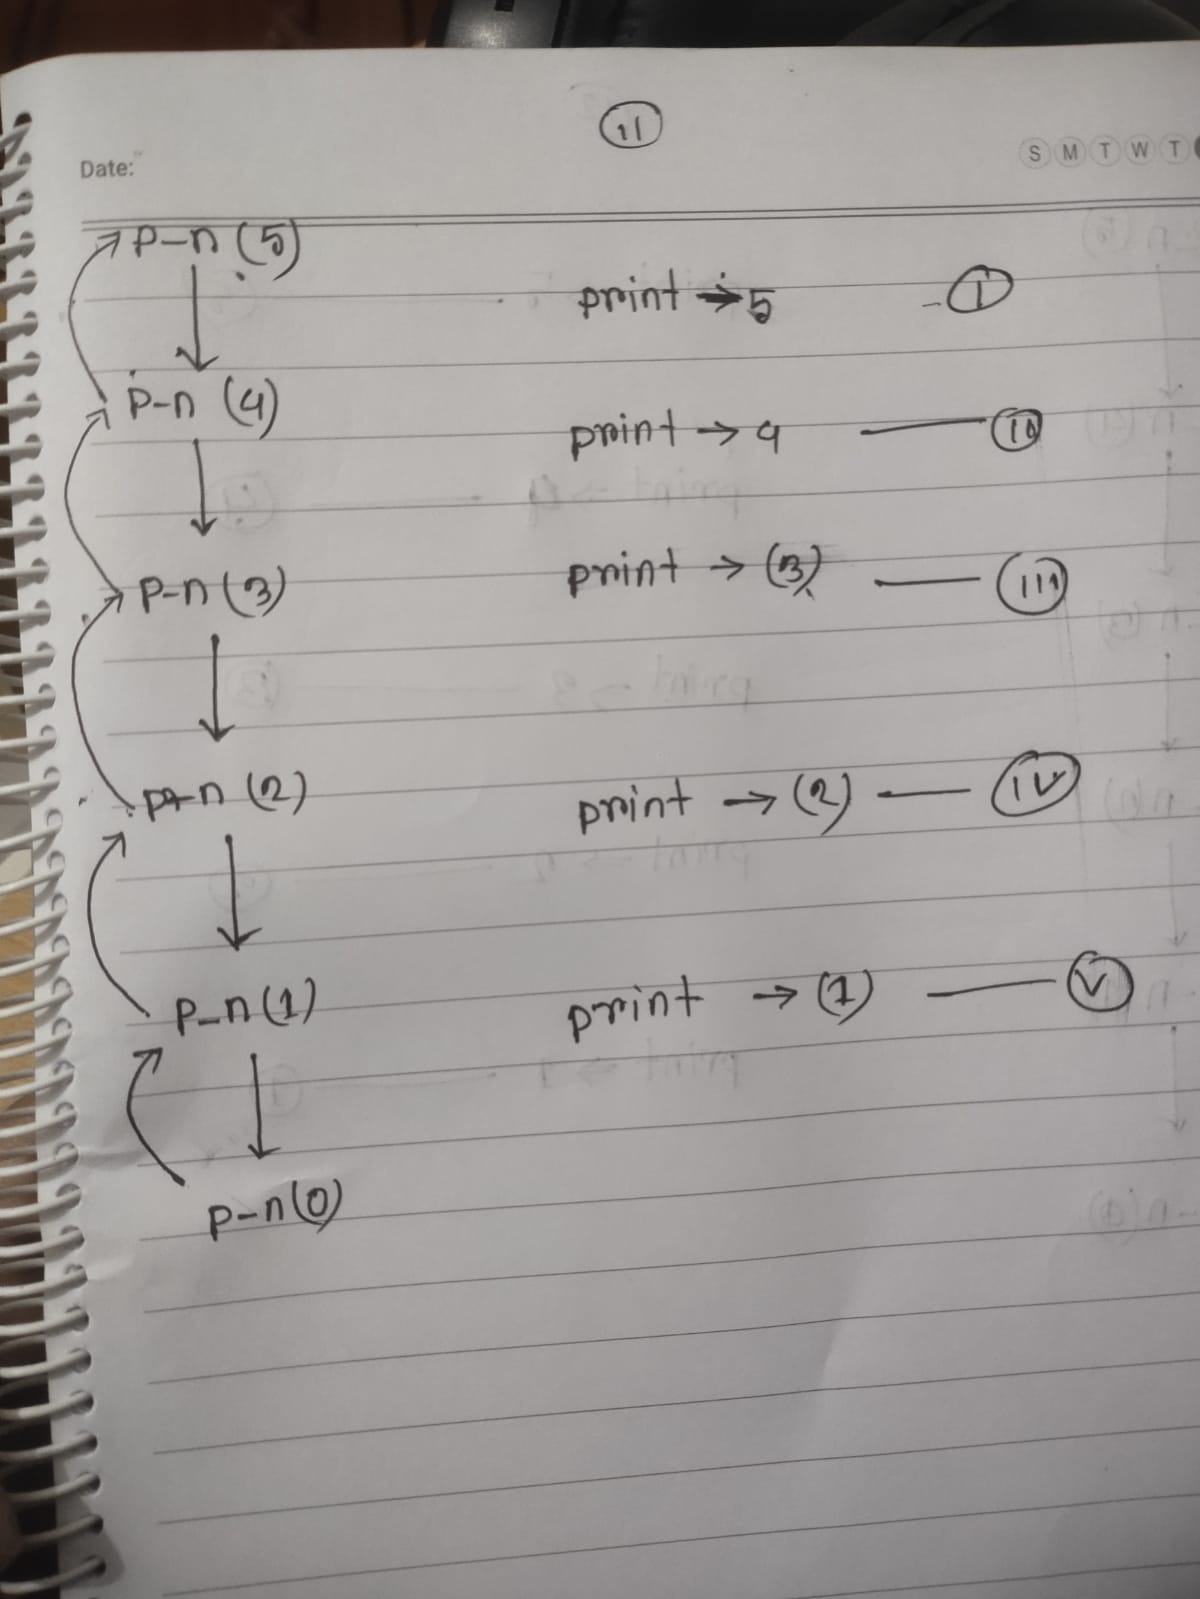 11
Date:
S M T W T
P-n (5)
print → 5 - I
P-n (4)
print → 4 — II
P-n (3)
print → (3) — III
p-n (2)
print → (2) — IV
P-n (1)
print → (1) — V
P-n (0)